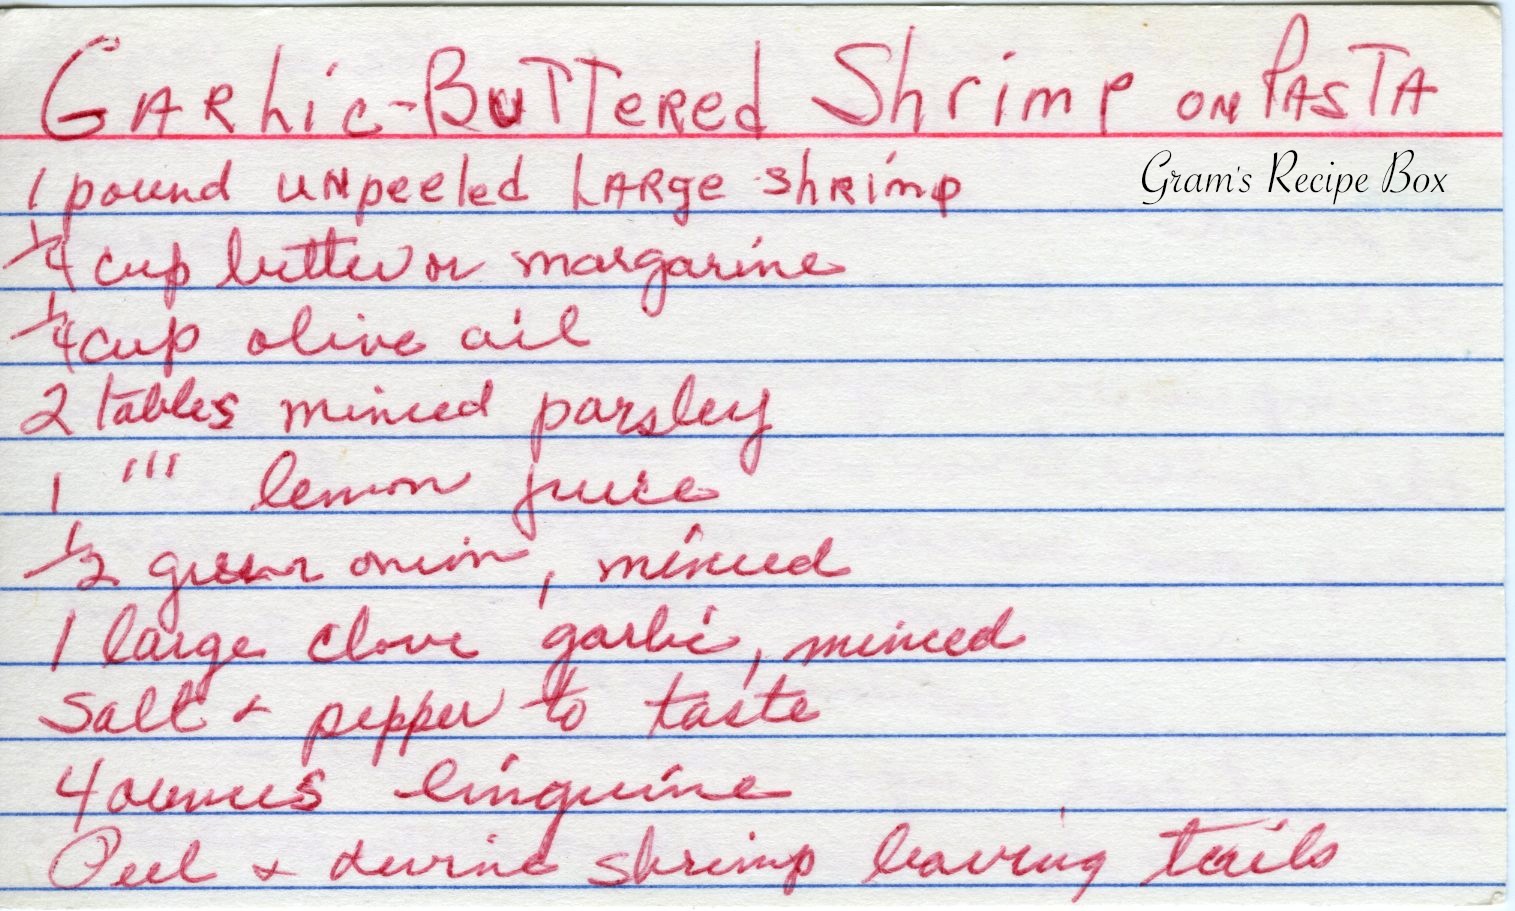 Garlic-Buttered Shrimp on Pasta
Gram's Recipe Box
1 pound unpeeled large shrimp
1/4 cup butter or margarine
1/4 cup olive oil
2 tables minced parsley
1 ''' lemon juice
1/2 green onion, minced
1 large clove garlic, minced
Salt & pepper to taste
4 ounces linguine
Peel & devine shrimp leaving tails